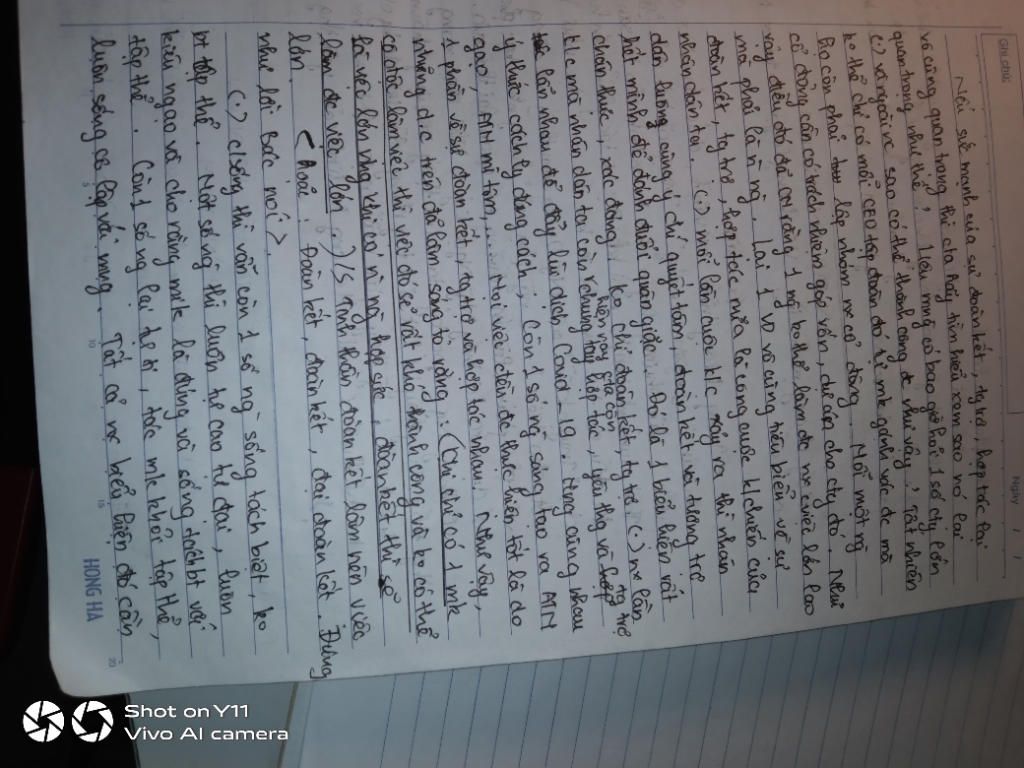 Ghi chú:
Ngày / /
Nếi sứ mệnh của sự đoàn kết, tg trợ, hợp tác lại
vô cùng quan trọng thì chta hãy tìm hiểu xem sao nó lại
quan trọng như thế, liệu mng có bao giờ hỏi 1 số cty lớn
(.) và ngoài nc sao có thể thành công đc như vậy. Tất nhiên
ko thể chỉ có mỗi CEO tập đoàn đó tự mk gánh vác đc mà
họ còn phải lập nhóm nx cổ đông. Mỗi một ng
cổ đông cần có trách nhiệm góp vốn, dự án cho cty đó. Như
vậy điều đó đủ CM rằng 1 ng ko thể làm đc nx việc lớn lao
mà phải là n ng. Lại 1 VD vô cùng tiêu biểu về sự
đoàn kết, tg trợ, hợp tác nữa là cong cuộc k/chiến của
nhân dân ta. (.) mỗi lần cuộc k/c xảy ra thì nhân
dân luông cùng ý chí quyết tâm, đoàn kết và tương trợ
hết mình để đánh đuổi quân giặc. Đó là 1 biểu hiện rất
chân thực, xác đáng. Ko chỉ đoàn kết, tg trợ (.) nx lần
k/c mà nhân dân ta còn hợp tác, yêu thg và
hiện nay của còn
lẫn nhau để đẩy lùi dịch Covid_19, cùng cùng nhau
ý thức cách ly đúng cách. Còn 1 số ng sáng tạo ra ATM
gạo, ATM mì tôm,... Mọi việc đều đc thực hiện tốt là do
1 phần về sự đoàn kết, tg trợ và hợp tác nhau. Như vậy,
những d.c trên đủ làm sáng tỏ rằng: (Chi chỉ có 1 mk
cô độc làm việc thì việc đó sẽ rất khó thành cong và ko có thể
là việc lớn nhg khi có n ng hợp sức, đoàn kết thì sẽ
làm đc việc lớn)/S Tinh thần đoàn kết làm nên việc
lớn. < Hoà Đoàn kết, đoàn kết, đại đoàn kết. Đúng
như lời Bác nói >.
(.) c/sống thì vẫn còn 1 số ng sống tách biệt, ko
pt tập thể. Một số ng thì luôn tự cao tự đại, luôn
kiêu ngạo và cho rằng mk là đúng và sống tách bt với
tập thể. Còn 1 số ng lại tự ti, tách mk khỏi tập thể,
luôn sống cô lập với mng. Tất cả nx biểu hiện đó cần
5 10 15 20
HONG HA
Shot on Y11
Vivo AI camera